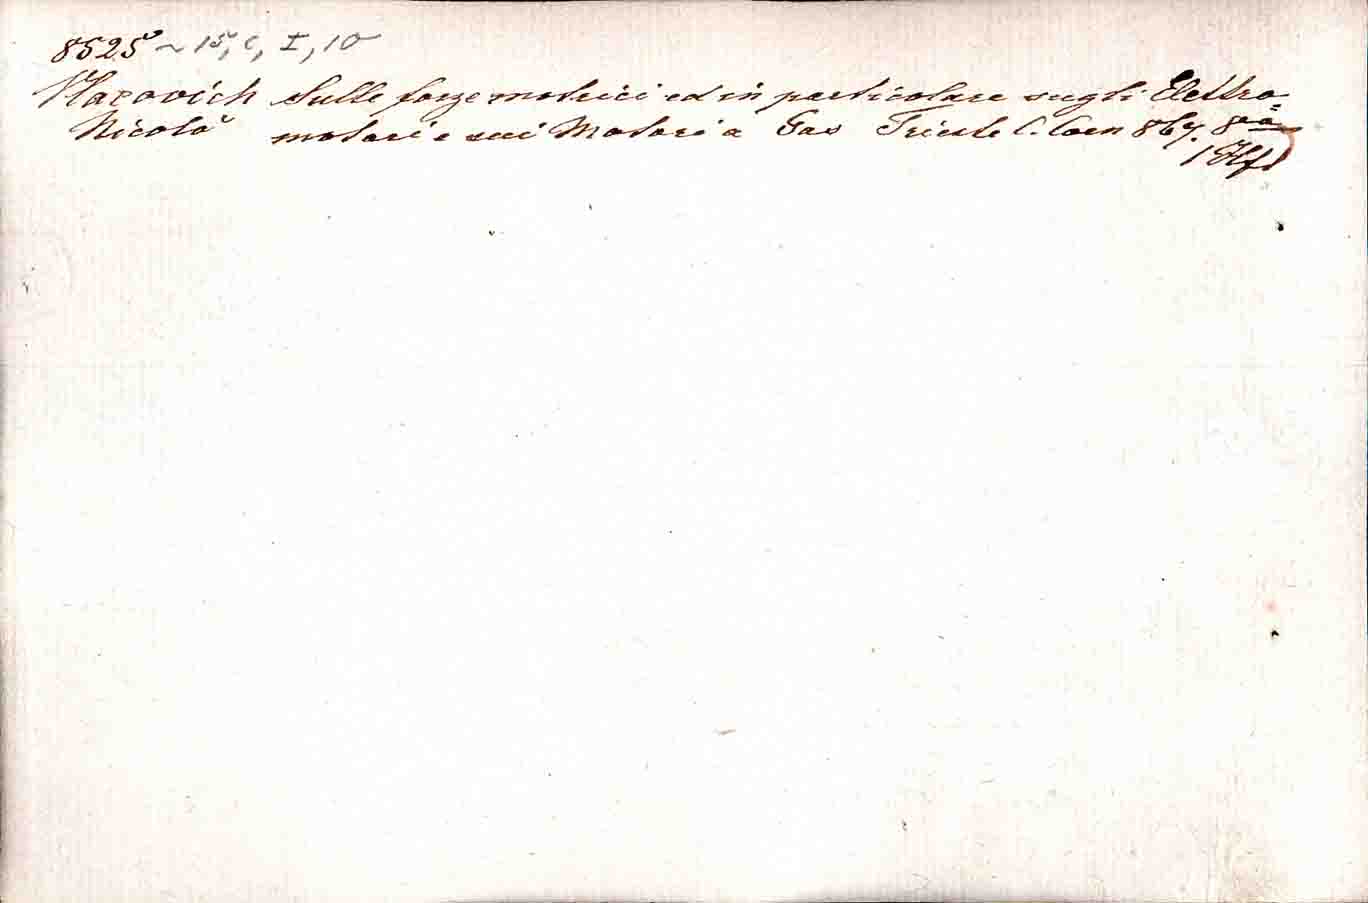 8525 ~ 15, C, I, 10
Vlacovich Sulle forze motrici ed in particolare sugli Elettro=
Nicolò motori e sui Motori a Gas Trieste C. Coen 867. 8vo
1 Hft